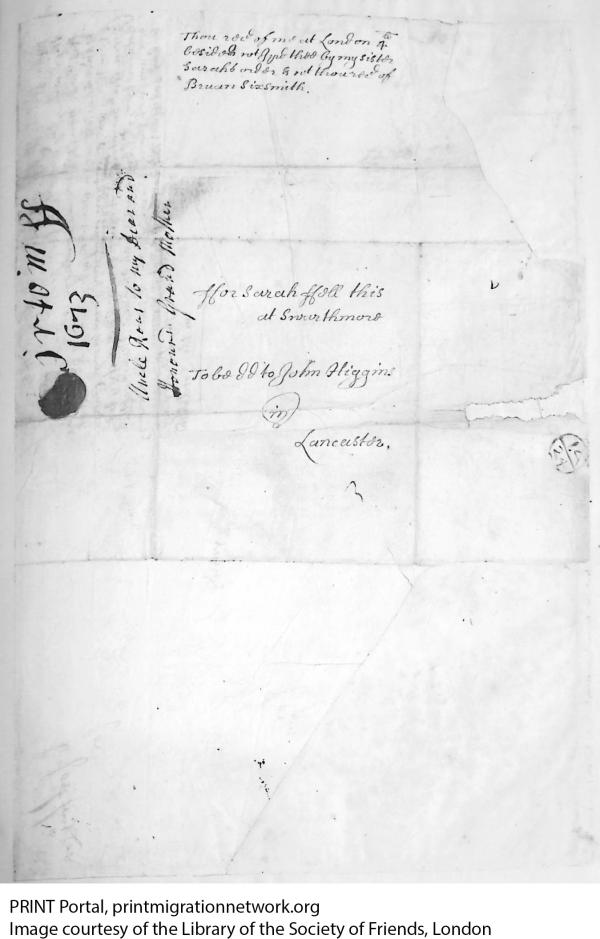 Thou recd of me at London 4li
besides not I pd thee by my sister
Sarahs order & wt thou recd of
Bruan Sixsmith.
ffor Sarah ffell this
at Swarthmore
To be dd to John Higgins
in
Lancaster.
Uncle Rous to my Dear and
Honourd Grand Mother
1673
PRINT Portal, printmigrationnetwork.org
Image courtesy of the Library of the Society of Friends, London